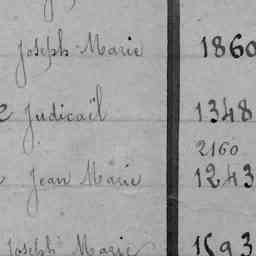 Joseph Marie 1860
Judicaël 1348
2160
Jean Marie 1243
Joseph Marie 1593